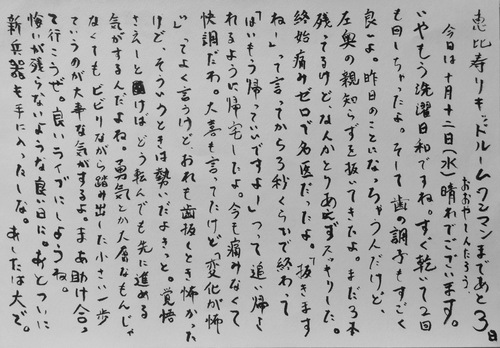 恵比寿リキッドルームワンマンまであと3日
おおやしんたろう
今日は十月十二日(水)晴れでございます。
いやもう洗濯日和ですね。すぐ乾いて2回
も回しちゃったよ。そして歯の調子もすごく
良いよ。昨日のことになっちゃうんだけど、
左奥の親知らずを抜いてきたよ。まだ3本
残ってるけど、なんかとりあえずスッキリした。
終始痛みゼロで名医だったよ。「抜きます
ねー」って言ってから3秒くらいで終わって
「はいもう帰っていいですよー」つって追い帰さ
れるように帰宅したよ。今も痛みなくて
快調だわ。大喜も言ってたけど「変化が怖
い」ってよく言うけどおれも歯抜くとき怖かった
けど、そういうのときは勢いだよきっと。覚悟
さえしとけばどう転んでも先に進める
気がするんだよね。勇気とか大層なもんじゃ
なくてもビビりながら踏み出した小さい一歩
っていうのが大事な気がするよ。まあ助け合っ
て行こうぜ。良いライブにしようね。
悔いが残らないような良い日に。あとついに
新兵器も手に入ったしな。あしたは大で。